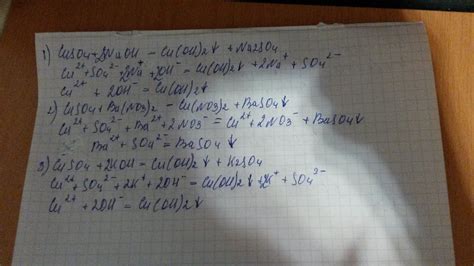 1) CuSO4+2NaOH – Cu(OH)2↓ +Na2SO4
Cu²⁺+SO4²⁻+2Na⁺+2OH⁻ – Cu(OH)2↓ +2Na⁺ + SO4²⁻
Cu²⁺ + 2OH⁻ = Cu(OH)2↓
2) CuSO4+Ba(NO3)2 – Cu(NO3)2+BaSO4↓
Cu²⁺+SO4²⁻+Ba²⁺+2NO3⁻ = Cu²⁺+2NO3⁻+BaSO4↓
Ba²⁺+SO4²⁻=BaSO4↓
3) CuSO4+2KOH – Cu(OH)2↓+K2SO4
Cu²⁺+SO4²⁻+2K⁺+2OH⁻–Cu(OH)2↓+2K⁺+SO4²⁻
Cu²⁺+2OH⁻=Cu(OH)2↓